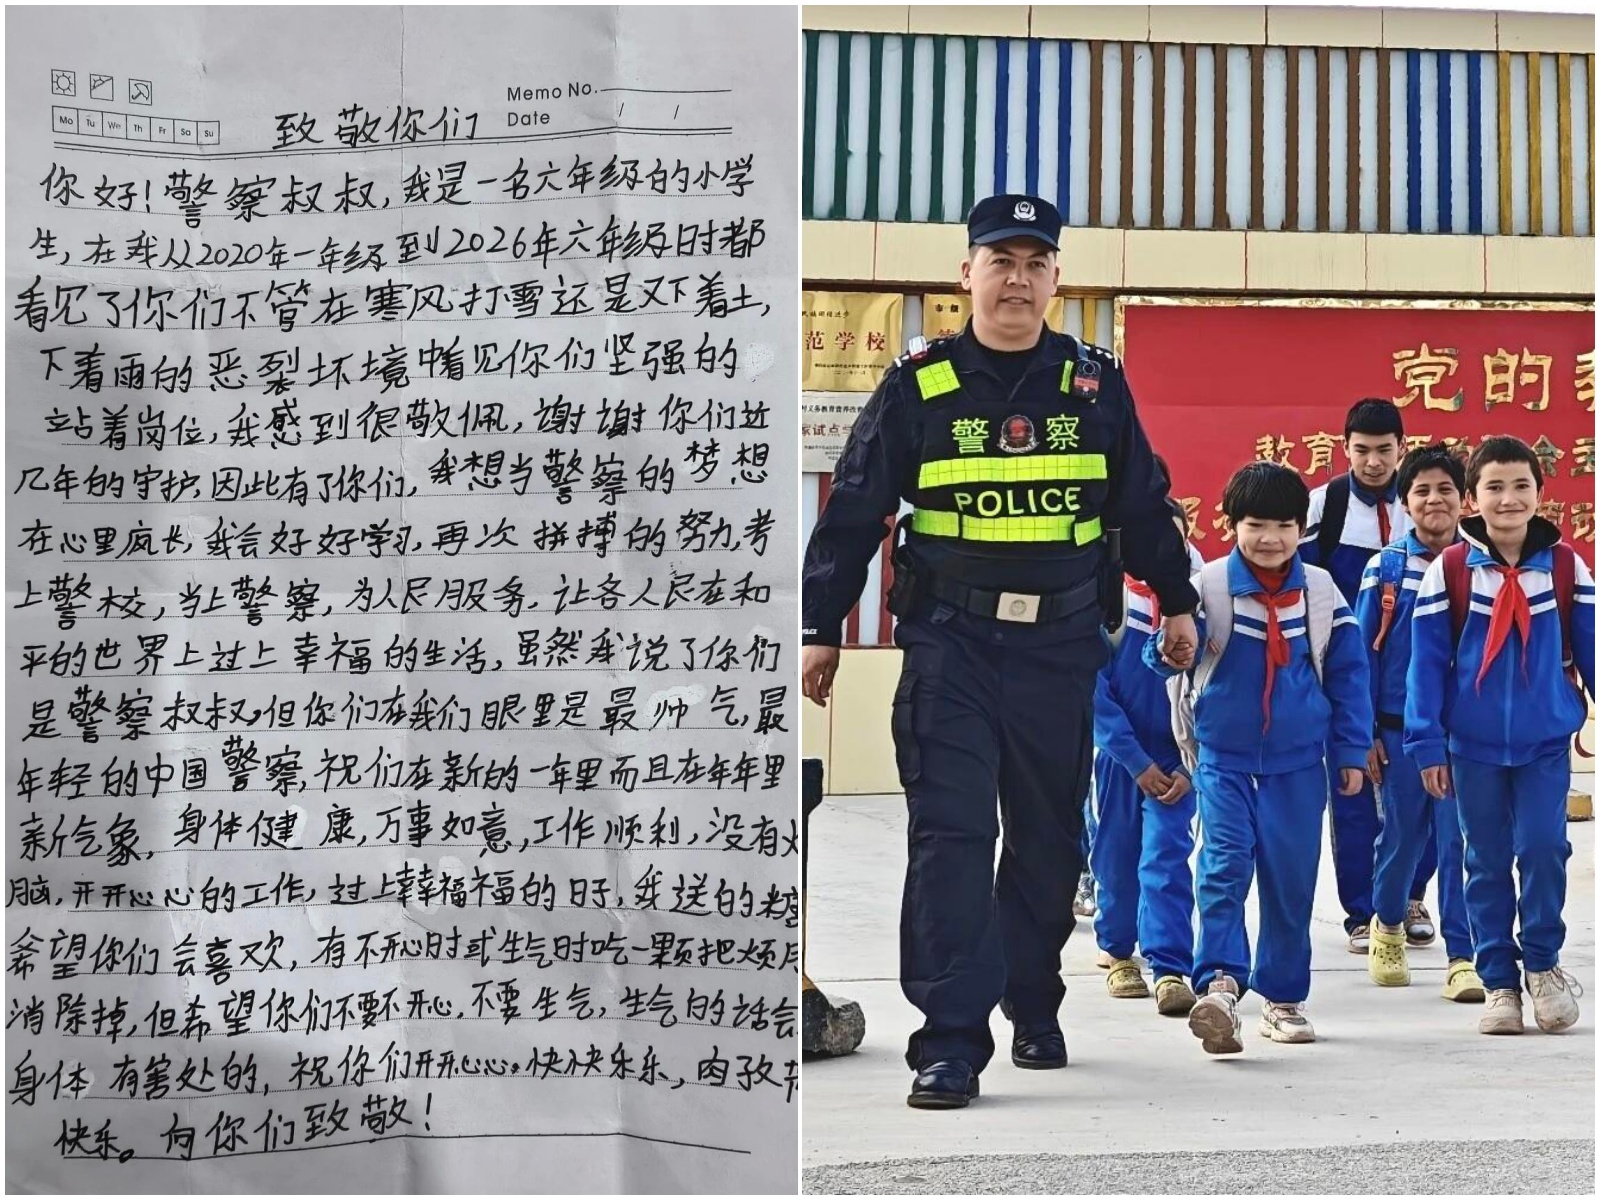 Memo No.
Date / /
Mo Tu We Th Fr Sa Su
致敬你们
你好!警察叔叔,我是一名六年级的小学
生,在我从2020年一年级到2026年六年级时都
看见了你们不管在寒风打雪还是又下着土,
下着雨的恶裂坏境中看见你们坚强的
站着岗位,我感到很敬佩,谢谢你们近
几年的守护,因此有了你们,我想当警察的梦想
在心里疯长,我会好好学习,再次拼搏的努力,考
上警校,当上警察,为人民服务.让各人民在和
平的世界上过上幸福的生活,虽然我说了你们
是警察叔叔,但你们在我们眼里是最帅气,最
年轻的中国警察,祝们在新的一年里而且在年年里
新气象,身体健康,万事如意,工作顺利,没有
脑,开开心心的工作,过上幸幸福福的日子,我送的糖
希望你们会喜欢,有不开心时或生气时吃一颗把烦
消除掉,但希望你们不要不开心,不要生气,生气的话会
身体有害处的,祝你们开开心心。快快乐乐,肉孜节
快乐。向你们致敬!
范学校
市级
家试点
党的
教育
警察
POLICE